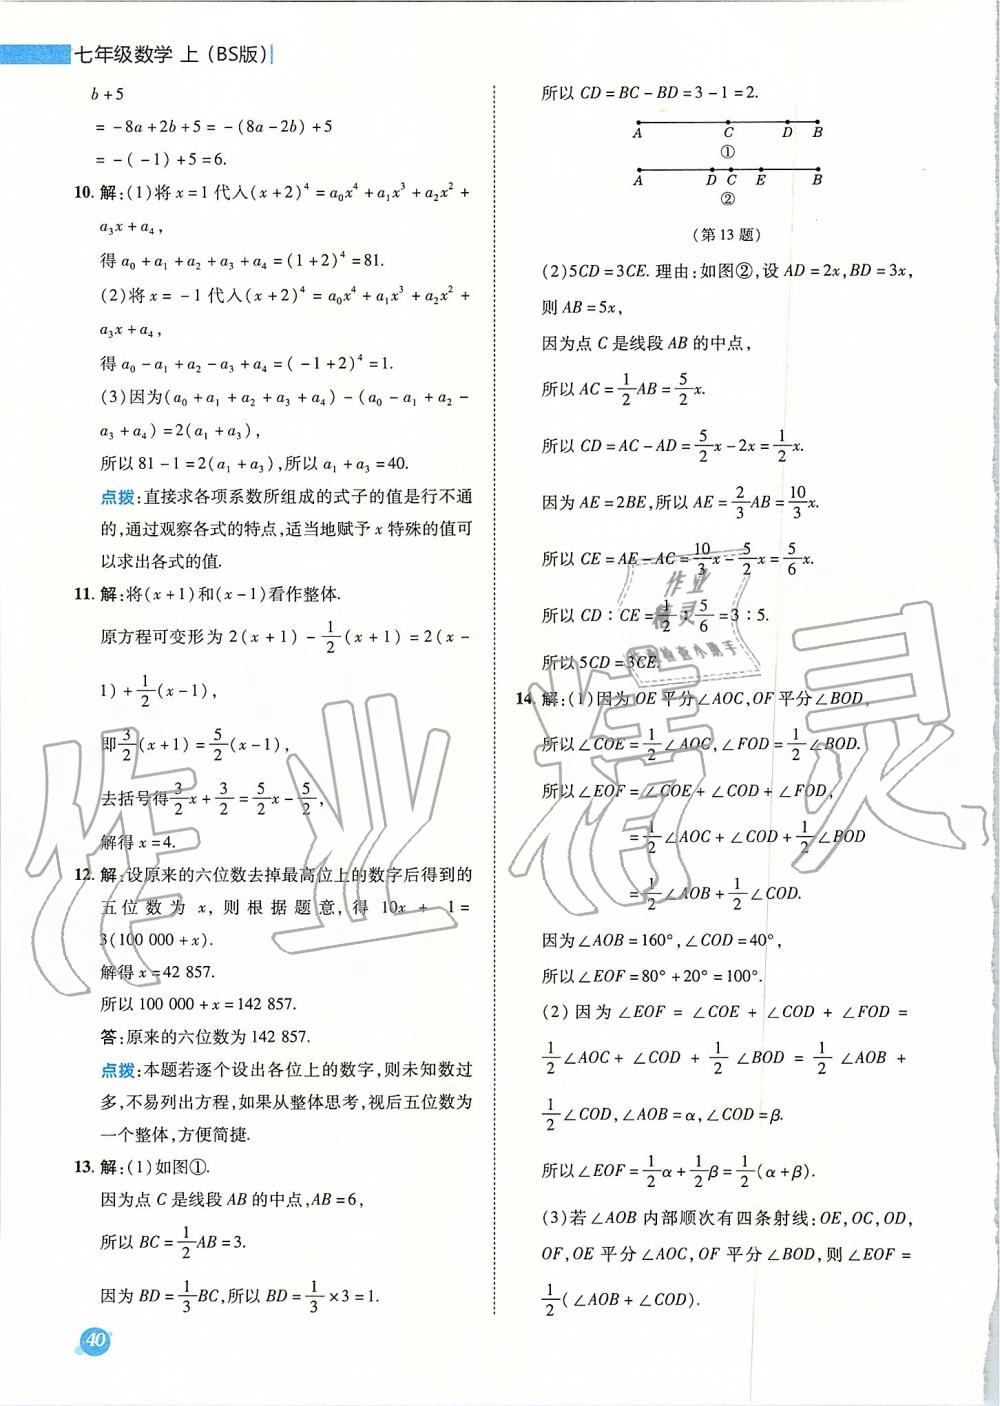 七年级数学 上（BS版）
b+5
= -8a+2b+5= -(8a-2b)+5
= -(-1)+5=6.
10. 解:(1)将 x=1 代入(x+2)⁴=a₀x⁴+a₁x³+a₂x²+
a₃x+a₄,
得 a₀+a₁+a₂+a₃+a₄=(1+2)⁴=81.
(2)将 x=-1 代入(x+2)⁴=a₀x⁴+a₁x³+a₂x²+
a₃x+a₄,
得 a₀-a₁+a₂-a₃+a₄=(-1+2)⁴=1.
(3)因为(a₀+a₁+a₂+a₃+a₄)-(a₀-a₁+a₂-
a₃+a₄)=2(a₁+a₃),
所以 81-1=2(a₁+a₃),所以 a₁+a₃=40.
点拨:直接求各项系数所组成的式子的值是行不通
的,通过观察各式的特点,适当地赋予 x 特殊的值可
以求出各式的值.
11. 解:将(x+1)和(x-1)看作整体.
原方程可变形为 2(x+1)-1/2(x+1)=2(x-
1)+1/2(x-1),
即3/2(x+1)=5/2(x-1),
去括号得3/2x+3/2=5/2x-5/2,
解得 x=4.
12. 解:设原来的六位数去掉最高位上的数字后得到的
五位数为 x,则根据题意,得 10x + 1=
3(100 000+x).
解得 x=42 857.
所以 100 000+x=142 857.
答:原来的六位数为 142 857.
点拨:本题若逐个设出各位上的数字,则未知数过
多,不易列出方程,如果从整体思考,视后五位数为
一个整体,方便简捷.
13. 解:(1)如图①.
因为点 C 是线段 AB 的中点,AB=6,
所以 BC=1/2AB=3.
因为 BD=1/3BC,所以 BD=1/3×3=1.
40
所以 CD=BC-BD=3-1=2.
A C D B
①
A D C E B
②
(第 13 题)
(2)5CD=3CE.理由:如图②,设 AD=2x,BD=3x,
则 AB=5x,
因为点 C 是线段 AB 的中点,
所以 AC=1/2AB=5/2x.
所以 CD=AC-AD=5/2x-2x=1/2x.
因为 AE=2BE,所以 AE=2/3AB=10/3x.
所以 CE=AE-AC=10/3x-5/2x=5/6x.
所以 CD:CE=1/2:5/6=3:5.
所以 5CD=3CE.
14. 解:(1)因为 OE 平分∠AOC,OF 平分∠BOD,
所以∠COE=1/2∠AOC,∠FOD=1/2∠BOD.
所以∠EOF=∠COE+∠COD+∠FOD,
=1/2∠AOC+∠COD+1/2∠BOD
=1/2∠AOB+1/2∠COD.
因为∠AOB=160°,∠COD=40°,
所以∠EOF=80°+20°=100°.
(2)因为∠EOF = ∠COE + ∠COD + ∠FOD =
1/2∠AOC+ ∠COD + 1/2∠BOD = 1/2∠AOB +
1/2∠COD,∠AOB=α,∠COD=β.
所以∠EOF=1/2α+1/2β=1/2(α+β).
(3)若∠AOB 内部顺次有四条射线:OE,OC,OD,
OF,OE 平分∠AOC,OF 平分∠BOD,则∠EOF=
1/2(∠AOB+∠COD).
作业精灵
作业
精灵
作业检查小助手